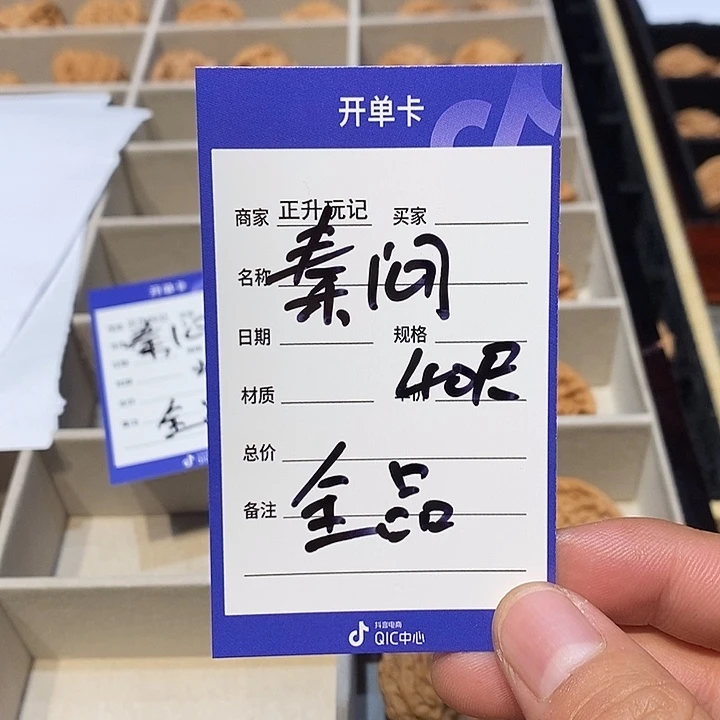 开单卡
商家 正升玩记 买家
名称 秦润
日期 规格
40尺
材质 单价
总价
备注 全品
抖音电商
QIC中心
开单卡